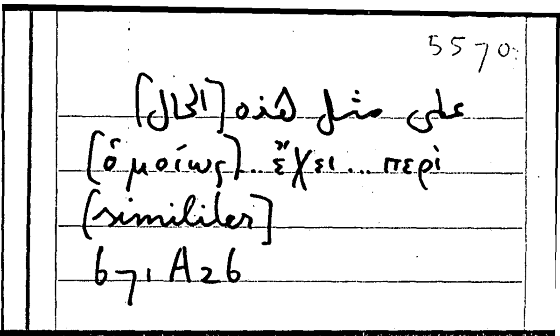 5570
على مثل هذه [الحال]
[ὁμοίως]..ἔχει...περὶ
[similiter]
671 A26